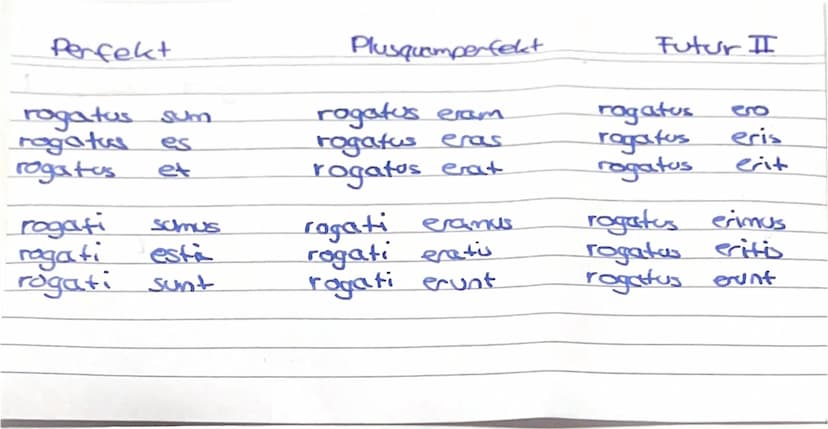 Perfekt Plusquamperfekt Futur II
rogatus sum rogatus eram rogatus ero
rogatus es rogatus eras rogatus eris
rogatus et rogatos erat rogatus erit
rogati sumus rogati eramus rogatus erimus
rogati estis rogati eratis rogatus eritis
rogati sunt rogati erunt rogatus erunt